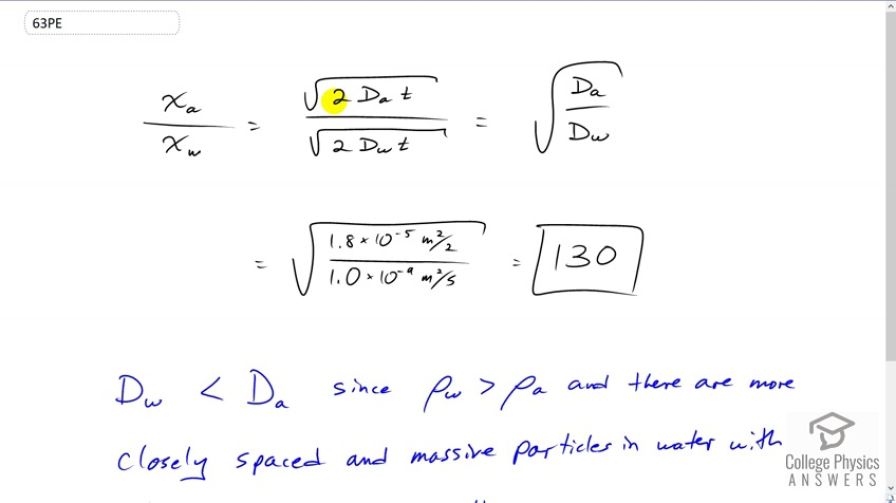 63PE
x_a / x_w = √(2 D_a t) / √(2 D_w t) = √(D_a / D_w)
= √(1.8 × 10^-5 m^2/2 / 1.0 × 10^-9 m^2/s) = 130
D_w < D_a since ρ_w > ρ_a and there are more
closely spaced and massive particles in water with
College Physics
ANSWERS